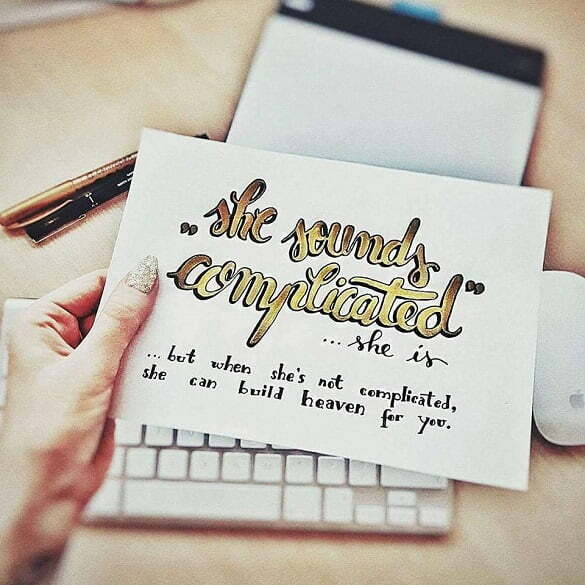 „she sounds
complicated”
... she is
... but when she's not complicated,
she can build heaven for you.